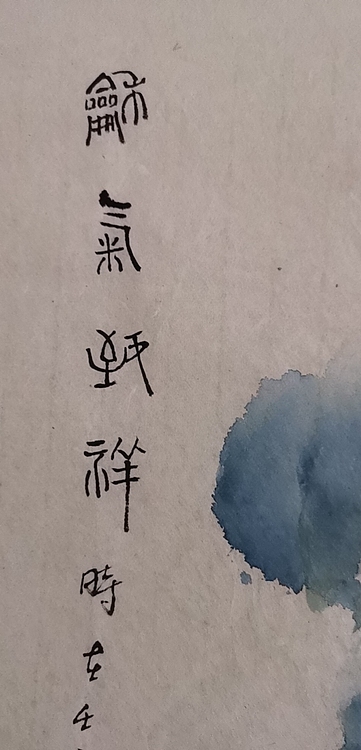 龢氣致祥時在壬